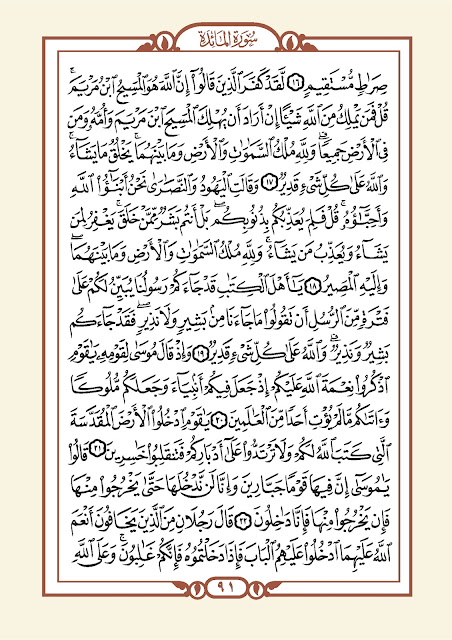 سُورَةُ المَائِدَة
صِرَٰطٍ مُّسْتَقِيمٍ ١٦ لَّقَدْ كَفَرَ ٱلَّذِينَ قَالُوٓا۟ إِنَّ ٱللَّهَ هُوَ ٱلْمَسِيحُ ٱبْنُ مَرْيَمَ ۚ
قُلْ فَمَن يَمْلِكُ مِنَ ٱللَّهِ شَيْـًٔا إِنْ أَرَادَ أَن يُهْلِكَ ٱلْمَسِيحَ ٱبْنَ مَرْيَمَ وَأُمَّهُۥ وَمَن
فِى ٱلْأَرْضِ جَمِيعًا ۗ وَلِلَّهِ مُلْكُ ٱلسَّمَٰوَٰتِ وَٱلْأَرْضِ وَمَا بَيْنَهُمَا ۚ يَخْلُقُ مَا يَشَآءُ ۚ
وَٱللَّهُ عَلَىٰ كُلِّ شَىْءٍ قَدِيرٌ ١٧ وَقَالَتِ ٱلْيَهُودُ وَٱلنَّصَٰرَىٰ نَحْنُ أَبْنَٰٓؤُا۟ ٱللَّهِ
وَأَحِبَّٰٓؤُهُۥ ۚ قُلْ فَلِمَ يُعَذِّبُكُم بِذُنُوبِكُم ۖ بَلْ أَنتُم بَشَرٌ مِّمَّنْ خَلَقَ ۚ يَغْفِرُ لِمَن
يَشَآءُ وَيُعَذِّبُ مَن يَشَآءُ ۚ وَلِلَّهِ مُلْكُ ٱلسَّمَٰوَٰتِ وَٱلْأَرْضِ وَمَا بَيْنَهُمَا ۖ
وَإِلَيْهِ ٱلْمَصِيرُ ١٨ يَٰٓأَهْلَ ٱلْكِتَٰبِ قَدْ جَآءَكُمْ رَسُولُنَا يُبَيِّنُ لَكُمْ عَلَىٰ
فَتْرَةٍ مِّنَ ٱلرُّسُلِ أَن تَقُولُوا۟ مَا جَآءَنَا مِنۢ بَشِيرٍ وَلَا نَذِيرٍ ۖ فَقَدْ جَآءَكُم
بَشِيرٌ وَنَذِيرٌ ۗ وَٱللَّهُ عَلَىٰ كُلِّ شَىْءٍ قَدِيرٌ ١٩ وَإِذْ قَالَ مُوسَىٰ لِقَوْمِهِۦ يَٰقَوْمِ
ٱذْكُرُوا۟ نِعْمَةَ ٱللَّهِ عَلَيْكُمْ إِذْ جَعَلَ فِيكُمْ أَنۢبِيَآءَ وَجَعَلَكُم مُّلُوكًا
وَءَاتَىٰكُم مَّا لَمْ يُؤْتِ أَحَدًا مِّنَ ٱلْعَٰلَمِينَ ٢٠ يَٰقَوْمِ ٱدْخُلُوا۟ ٱلْأَرْضَ ٱلْمُقَدَّسَةَ
ٱلَّتِى كَتَبَ ٱللَّهُ لَكُمْ وَلَا تَرْتَدُّوا۟ عَلَىٰٓ أَدْبَارِكُمْ فَتَنقَلِبُوا۟ خَٰسِرِينَ ٢١ قَالُوا۟
يَٰمُوسَىٰٓ إِنَّ فِيهَا قَوْمًا جَبَّارِينَ وَإِنَّا لَن نَّدْخُلَهَا حَتَّىٰ يَخْرُجُوا۟ مِنْهَا
فَإِن يَخْرُجُوا۟ مِنْهَا فَإِنَّا دَٰخِلُونَ ٢٢ قَالَ رَجُلَانِ مِنَ ٱلَّذِينَ يَخَافُونَ أَنْعَمَ
ٱللَّهُ عَلَيْهِمَا ٱدْخُلُوا۟ عَلَيْهِمُ ٱلْبَابَ فَإِذَا دَخَلْتُمُوهُ فَإِنَّكُمْ غَٰلِبُونَ ۚ وَعَلَى ٱللَّهِ
٩١